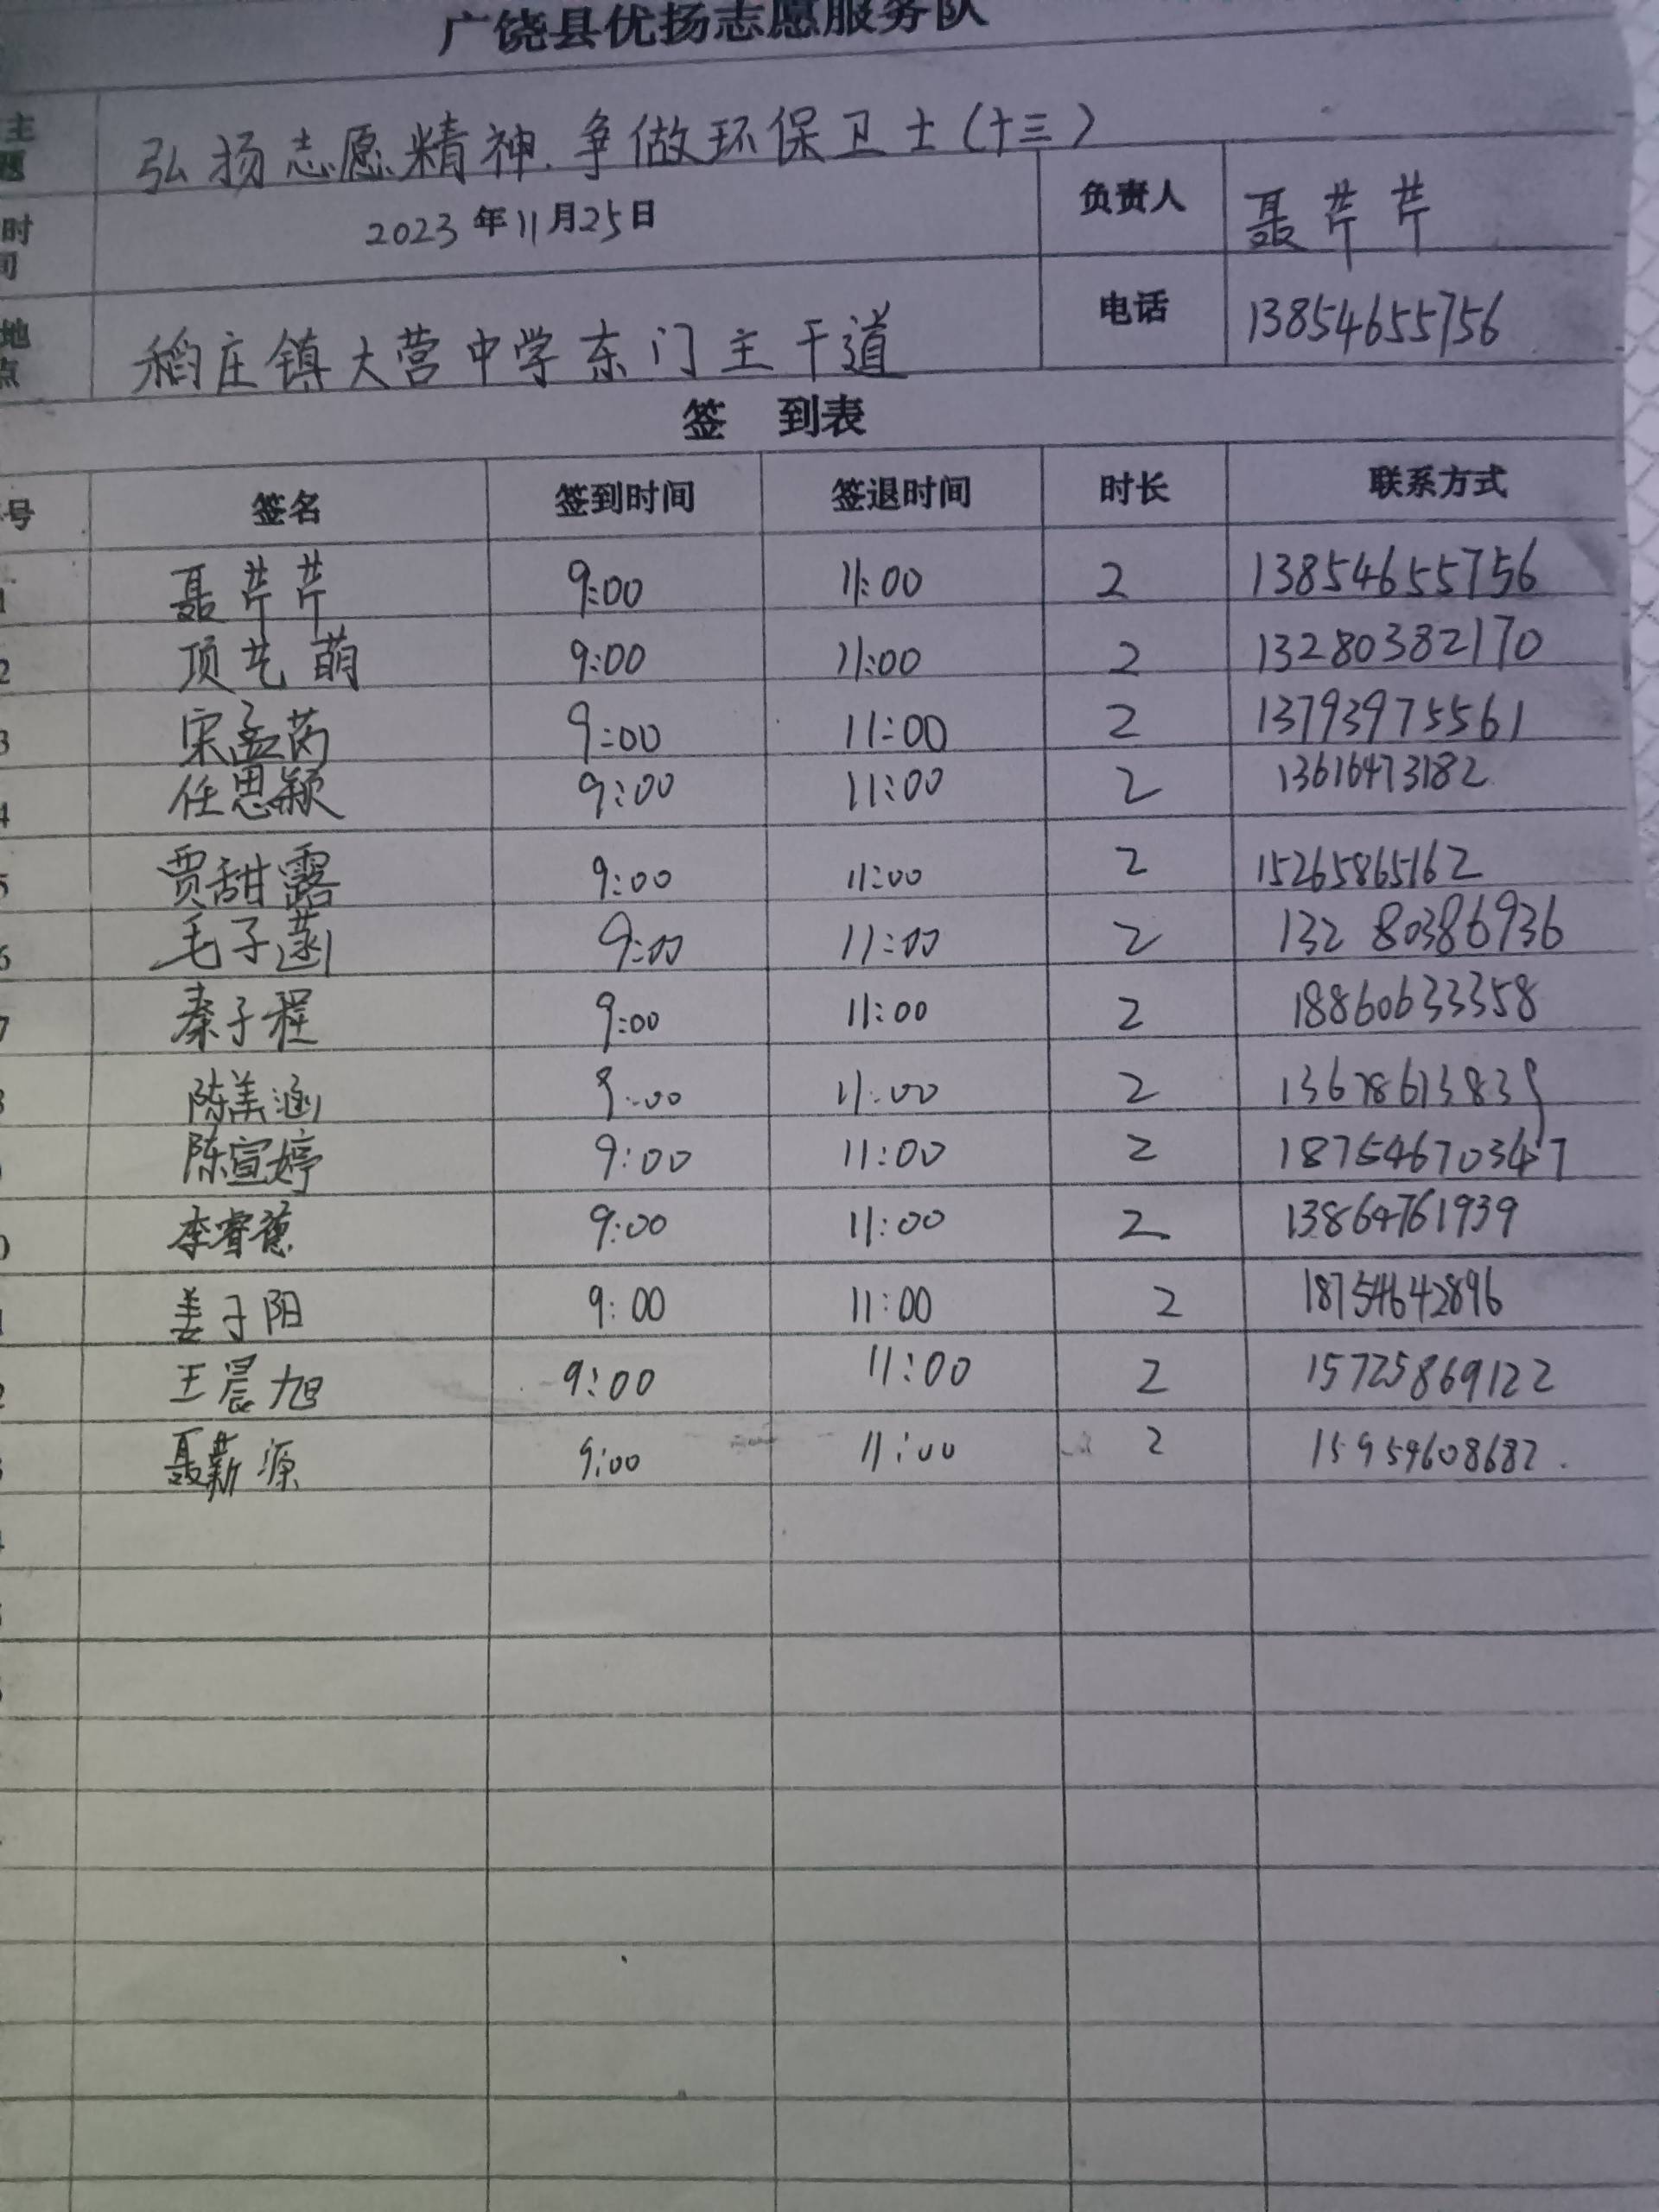 广饶县优扬志愿服务队
主题 弘扬志愿精神.争做环保卫士(十三)
时间 2023年11月25日 负责人 聂芹芹
地点 稻庄镇大营中学东门主干道 电话 13854655756
签 到表
号 签名 签到时间 签退时间 时长 联系方式
1 聂芹芹 9:00 11:00 2 13854655756
2 顶艺萌 9:00 11:00 2 13280382170
3 宋孟芮 9:00 11:00 2 13793975561
4 任思颖 9:00 11:00 2 13616473182
5 贾甜露 9:00 11:00 2 15265865162
6 毛子菡 9:00 11:00 2 132 80386936
7 秦子程 9:00 11:00 2 18860633358
陈美涵 9:00 11:00 2 13678613839
陈宣婷 9:00 11:00 2
0 李睿 9:00 11:00 2 13864761939
姜子阳 9:00 11:00 2 18754642896
2 王晨旭 9:00 11:00 2 15725869122
聂薪源 9:00 11:00 2 15959608682.